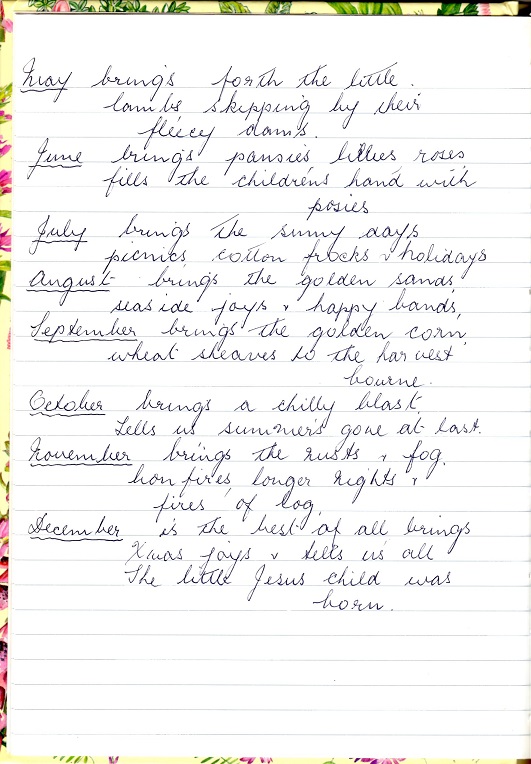 May brings forth the little.
lambs skipping by their
fleecy dams.
June brings pansies lillies roses
fills the children's hand with
posies
July brings the sunny days
picnics cotton frocks & holidays
August brings the golden sands,
seaside joys & happy bands,
September brings the golden corn,
wheat sheaves to the harvest
bourne.
October brings a chilly blast,
Tells us summer's gone at last.
November brings the rusts & fog,
bonfires, longer nights &
fires of log,
December is the best of all brings
Xmas joys & tells us all
The little Jesus child was
born.